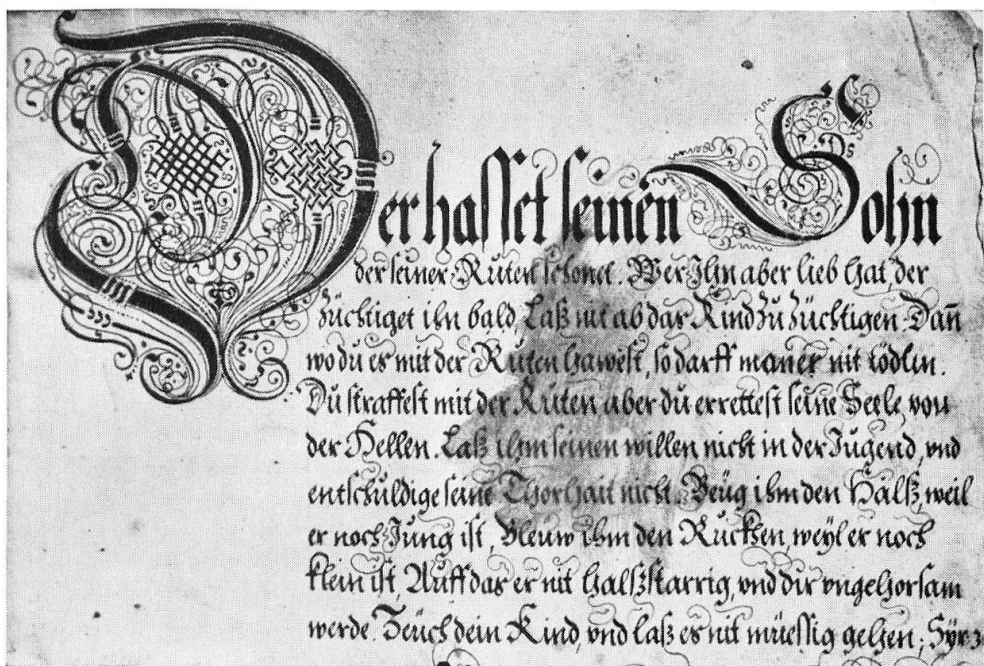 Der hasset seinen Sohn
der seiner Ruten schonet. Wer Ihn aber lieb hat, der
züchtiget ihn bald, Laß nit ab das Kind zu züchtigen. Dañ
wo du es mit der Ruten hawest, so darff maner nit tödtin.
Du straffest mit der Ruten aber du errettest seine Seele von
der Hellen. Laß ihm seinen willen nicht in der Jugend, vnd
entschuldige seine Thorhait nicht. Beüg ihm den Halß, weil
er noch Jung ist, bleuw ihm den Ruckhen, weyl er noch
klein ist, Auff das er nit halßstarrig, vnd dir vngehorsam
werde. Zeuch dein Kind, vnd laß es nit müessig gehen; Syr: 3